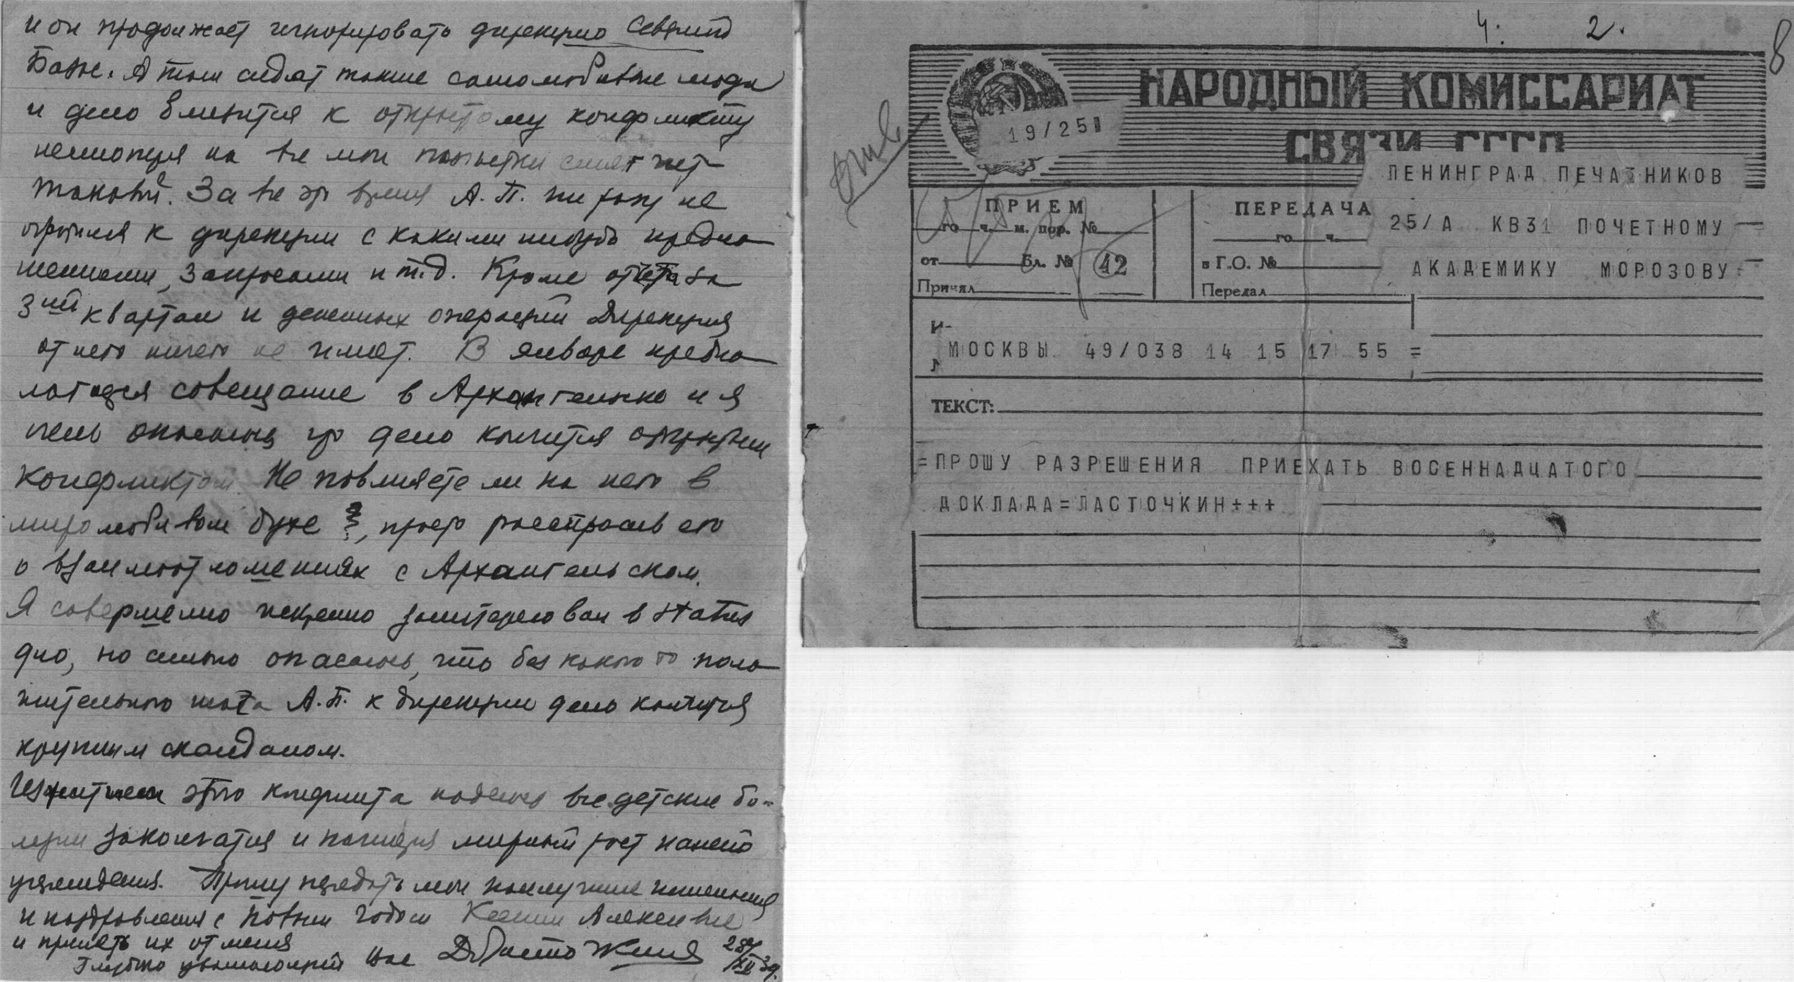 и он продолжает игнорировать дирекцию
А там сидят такие самолюбивые люди
и дело клонится к открытому конфликту
на все мои попытки
За все это время А.П. ни разу не
обратился к дирекции с какими нибудь предло-
жениями, запросами и т.д. Кроме отчета за
3ий квартал и денежных операций Дирекция
от него ничего не имеет. В январе предпо-
лагается совещание в Архангельске и я
очень опасаюсь что дело кончится открытым
конфликтом. Не повлияете ли на него в
миролюбивом духе, просто расспросив его
о взаимоотношениях с Архангельском.
Я совершенно искренно заинтересован в status
quo, но сильно опасаюсь, что без какого то поло-
жительного шага А.П. к дирекции дело кончится
крупным скандалом.
этого конфликта надеюсь все детские бо-
лезни закончатся и начнется мирный рост нашего
учреждения. Прошу передать мои наилучшие пожелания
и поздравления с Новым Годом Ксении Алексеевне
и принять их от меня
Глубоко уважающий Вас
4. 2.
8
НАРОДНЫЙ КОМИССАРИАТ
СВЯЗИ СССР
19/25
ЛЕНИНГРАД ПЕЧАТНИКОВ
25/А КВ31 ПОЧЕТНОМУ
АКАДЕМИКУ МОРОЗОВУ=
ПРИЕМ
го ч. м. пор. №
от Бл. № 42
Принял
ПЕРЕДАЧА
го ч.
в Г.О. №
Передал
МОСКВЫ 49/038 14 15 17 55 =
ТЕКСТ:
=ПРОШУ РАЗРЕШЕНИЯ ПРИЕХАТЬ ВОСЕННАДЦАТОГО
ДОКЛАДА=ЛАСТОЧКИН+++